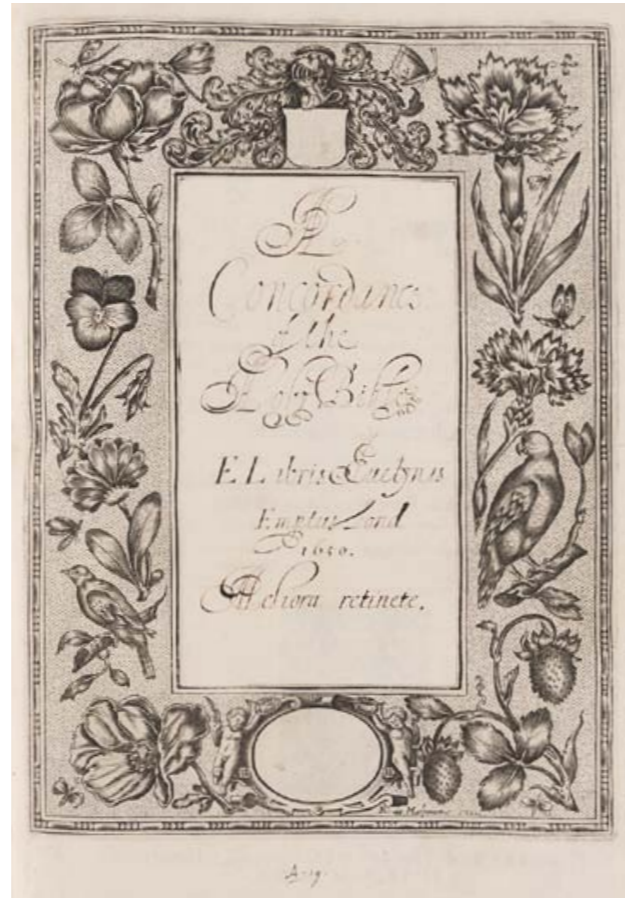 A
Concordance
of the
Holy Bible
E Libris Euelynis
Emptus Lond
1650.
Meliora retinete.
A·19·